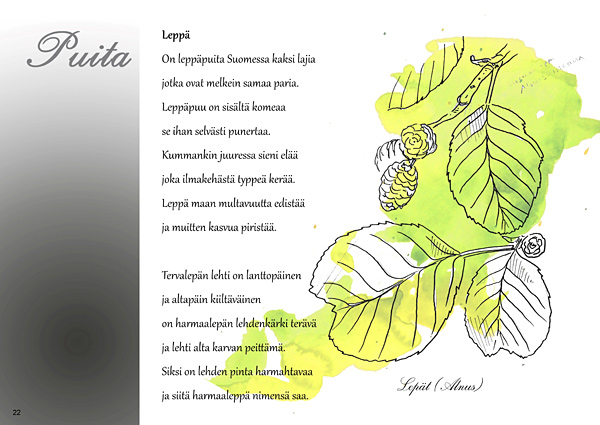 Puita
Leppä
On leppäpuita Suomessa kaksi lajia
jotka ovat melkein samaa paria.
Leppäpuu on sisältä komeaa
se ihan selvästi punertaa.
Kummankin juuressa sieni elää
joka ilmakehästä typpeä kerää.
Leppä maan multavuutta edistää
ja muitten kasvua piristää.
Tervalepän lehti on lanttopäinen
ja altapäin kiiltäväinen
on harmaalepän lehdenkärki terävä
ja lehti alta karvan peittämä.
Siksi on lehden pinta harmahtavaa
ja siitä harmaaleppä nimensä saa.
Lepät (Alnus)
22